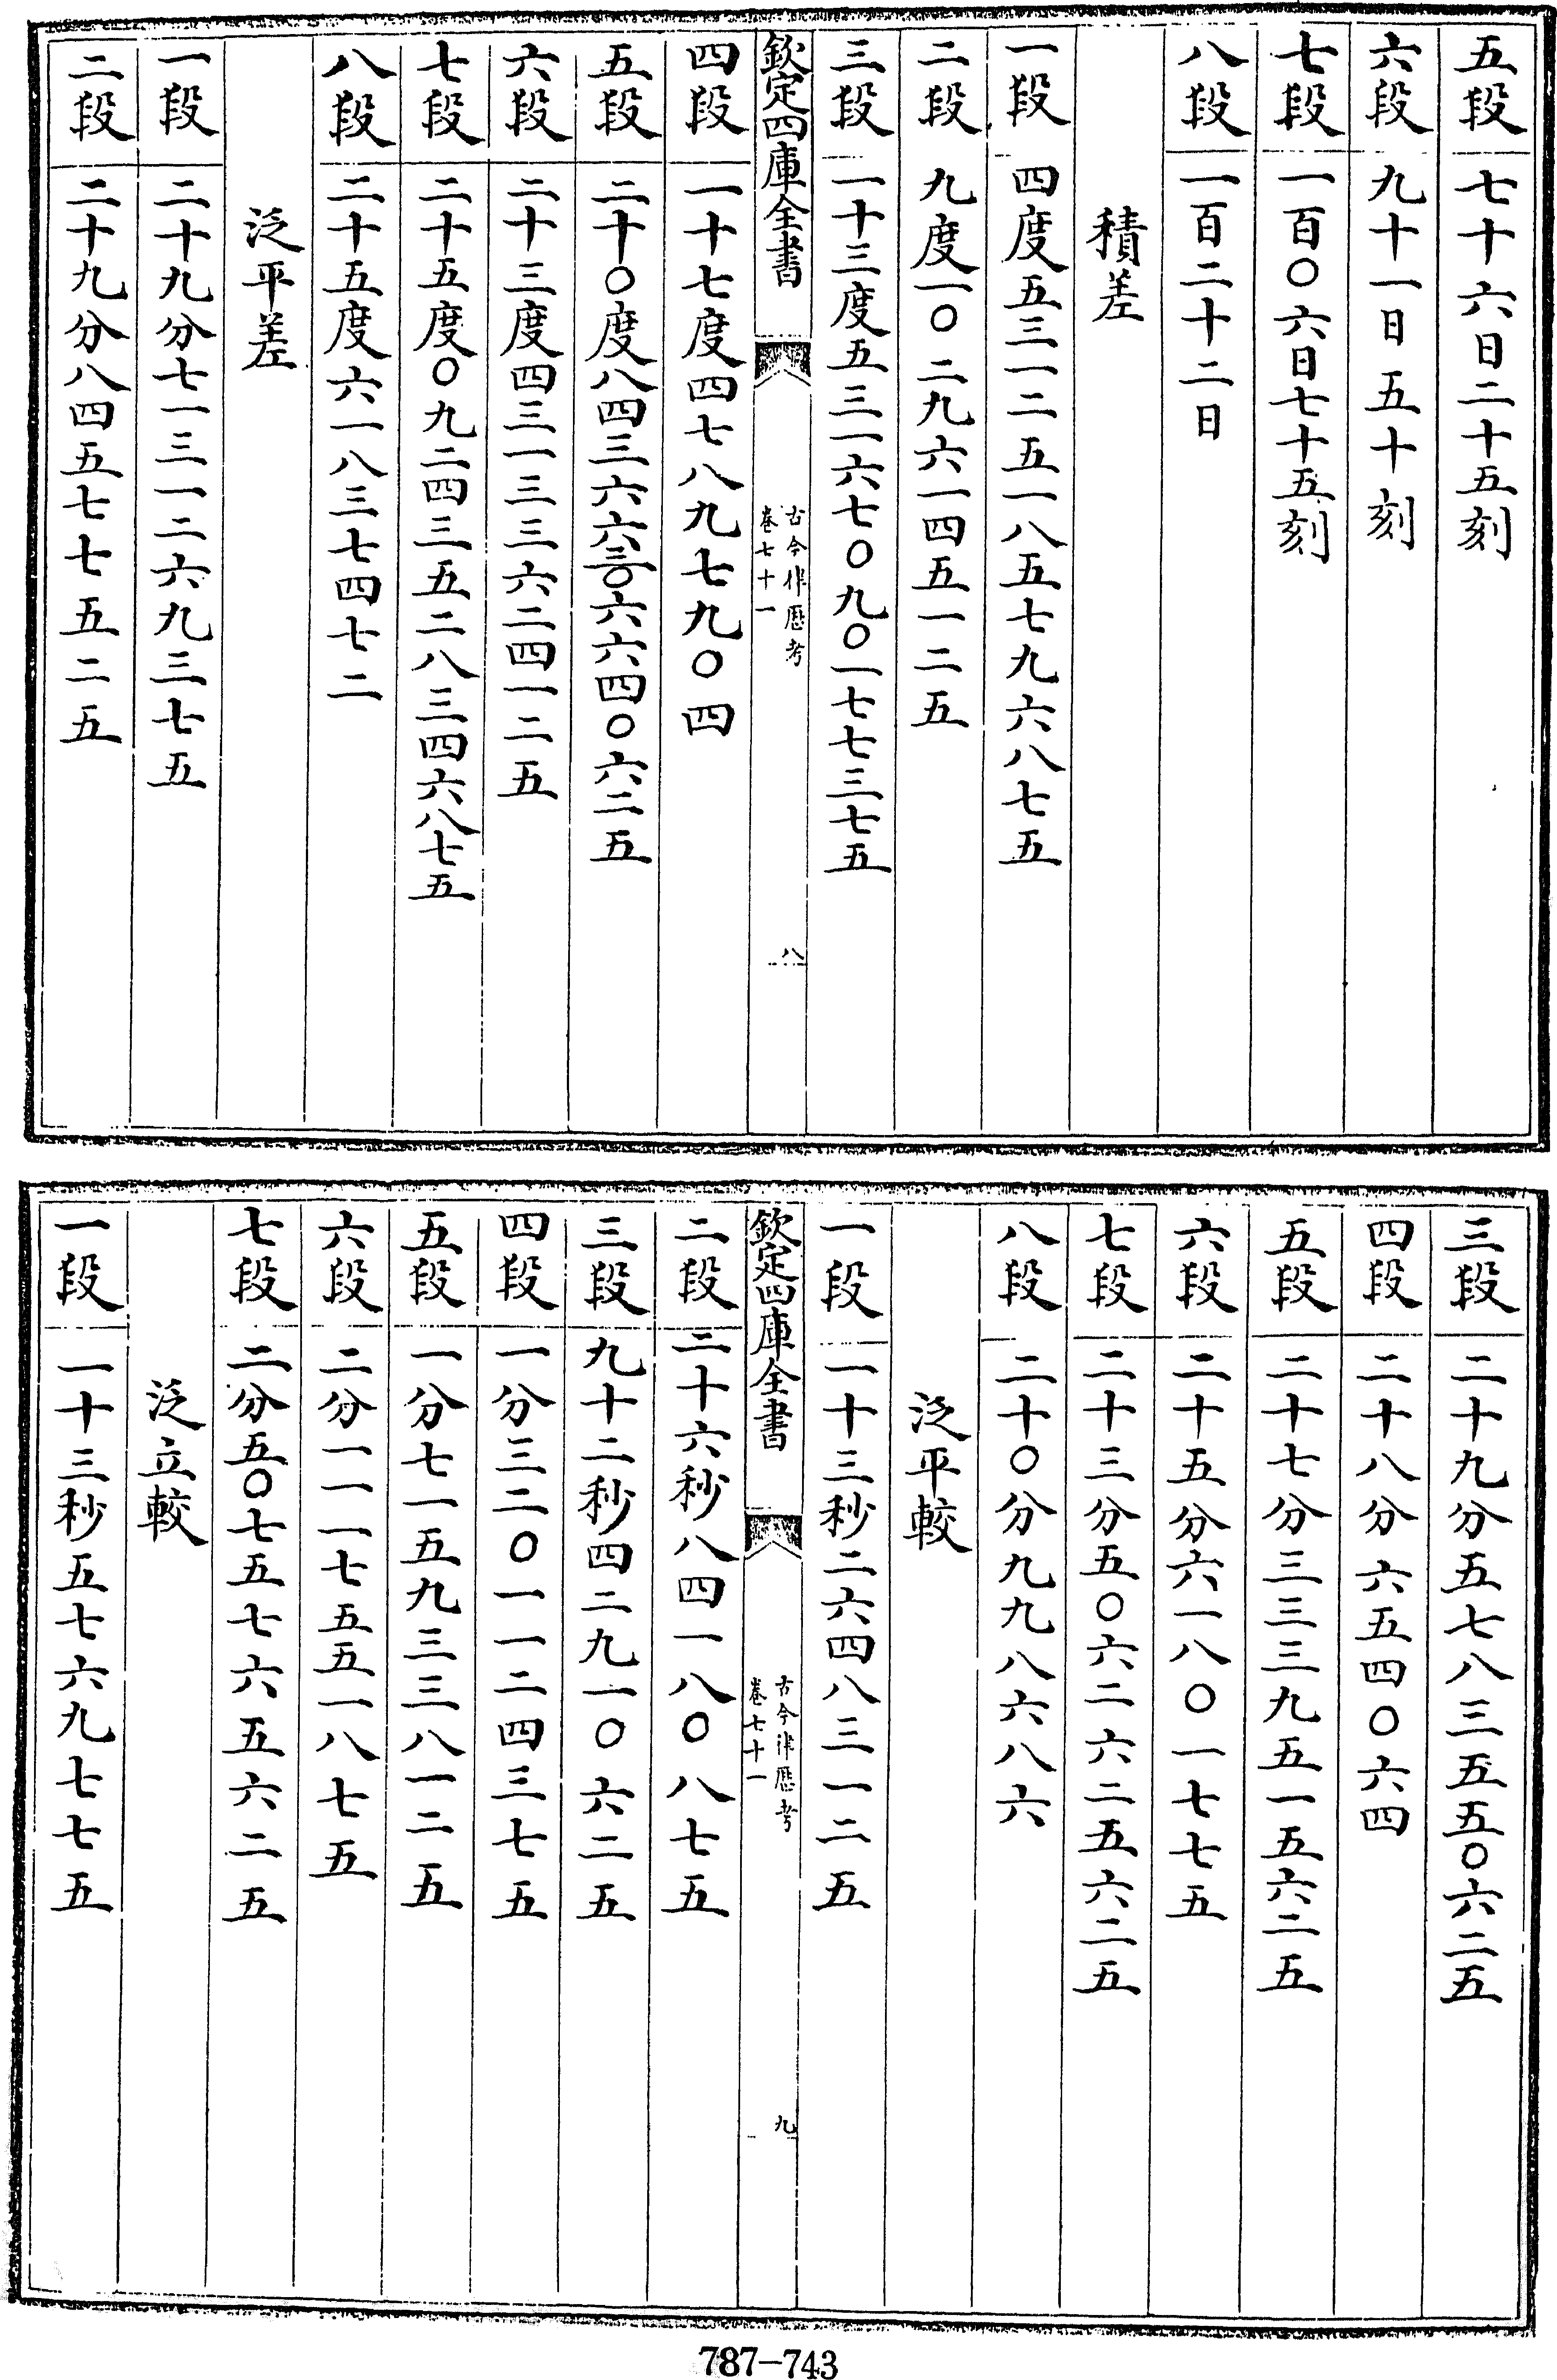 五段 七十六日二十五刻
六段 九十一日五十刻
七段 一百〇六日七十五刻
八段 一百二十二日
積差
一段 四度五三一二五一八五七九六八七五
二段 九度一〇二九六一四五一二五
三段 一十三度五三一六七〇九〇一七七三七五
欽定四庫全書
古今律歷考
卷七十一
八
四段 一十七度四七八九七九〇四
五段 二十〇度八四三六六三〇六六四〇六二五
六段 二十三度四三一三三六二四一二五
七段 二十五度〇九二四三五二八三四六八七五
八段 二十五度六一八三七四七二
泛平差
一段 二十九分七一三一二六九三七五
二段 二十九分八四五七七五二五
三段 二十九分五七八三五五〇六二五
四段 二十八分六五四〇六四
五段 二十七分三三三九五一五六二五
六段 二十五分六一八〇一七七五
七段 二十三分五〇六二六二五六二五
八段 二十〇分九九八六八六
泛平較
一段 一十三秒二六四八三一二五
欽定四庫全書
古今律歷考
卷七十一
九
二段 二十六秒八四一八〇八七五
三段 九十二秒四二九一〇六二五
四段 一分三二〇一一二四三七五
五段 一分七一五九三三八一二五
六段 二分一一一七五五一八七五
七段 二分五〇七五七六五六二五
泛立較
一段 一十三秒五七六九七七五
787-743